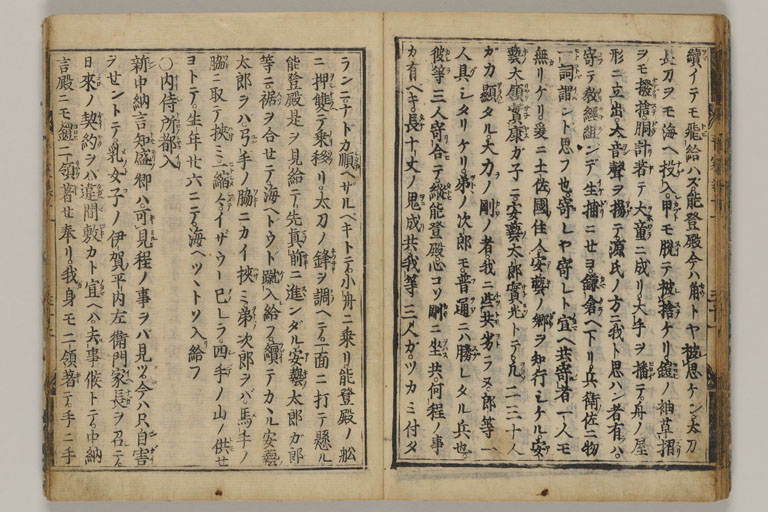 續イテモ飛給ハズ能登殿今ハ角トヤ被思ケン太刀
長刀ヲモ海ヘ投入甲モ脱テ被捨ケリ鎧ノ袖草摺
ヲモ捨胴計著テ大童ニ成リ大手ヲ播テ舟ノ屋
形ニ立出大音聲ヲ揚テ源氏ノ方ニ我ト思ハン者有ハ
寄テ教經組ンデ生捕ニセヨ鎌倉ヘ下リ兵衛佐ニ物
一詞謂ント思フ也寄レヤ寄レト宣ヘ共寄者一人モ
無リケリ爰ニ土佐國住人安藝ノ郷ヲ知行シケル安
藝大領實康ガ子ニ安藝太郎實光トテ凡二三十人
ガカ顯タル大力ノ剛ノ者我ニ些共劣ラヌ郎等一
人具シタリケリ弟ノ次郎モ普通ニハ勝レタル兵也
彼等三人寄合テ縱能登殿心コソ剛ニ坐共何程ノ事
カ有ベキ長十丈ノ鬼成共我等三人ガツカミ付タ
ランニナドカ順ヘザルベキトテ小舟ニ乗リ能登殿ノ舩
ニ押雙テ乗移リ太刀ノ鋒ヲ調ヘテ一面ニ打テ懸ル
能登殿是ヲ見給テ先真前ニ進ンダル安藝太郎カ郎
等ニ裾ヲ合セテ海ヘドウト蹴入給フ續テカヽル安藝
太郎ヲハ弓手ノ脇ニカイ挾ミ弟次郎ヲバ馬手ノ
脇ニ取テ挾ミ一縮〆イザウレ巳レラ四手ノ山ノ供セ
ヨトテ生年廿六ニテ海ヘツヽトソ入給フ
〇内侍所都入
新中納言知盛卿ハ可見程ノ事ヲバ見ツ今ハ只自害
ヲセントテ乳女子ノ伊賀平内左衛門家長ヲ召テ
日來ノ契約ヲバ違間敷カト宣ヘハ夫事候トテ中納
言殿ニモ鎧二領著セ奉リ我身モ二領著テ手ニ手